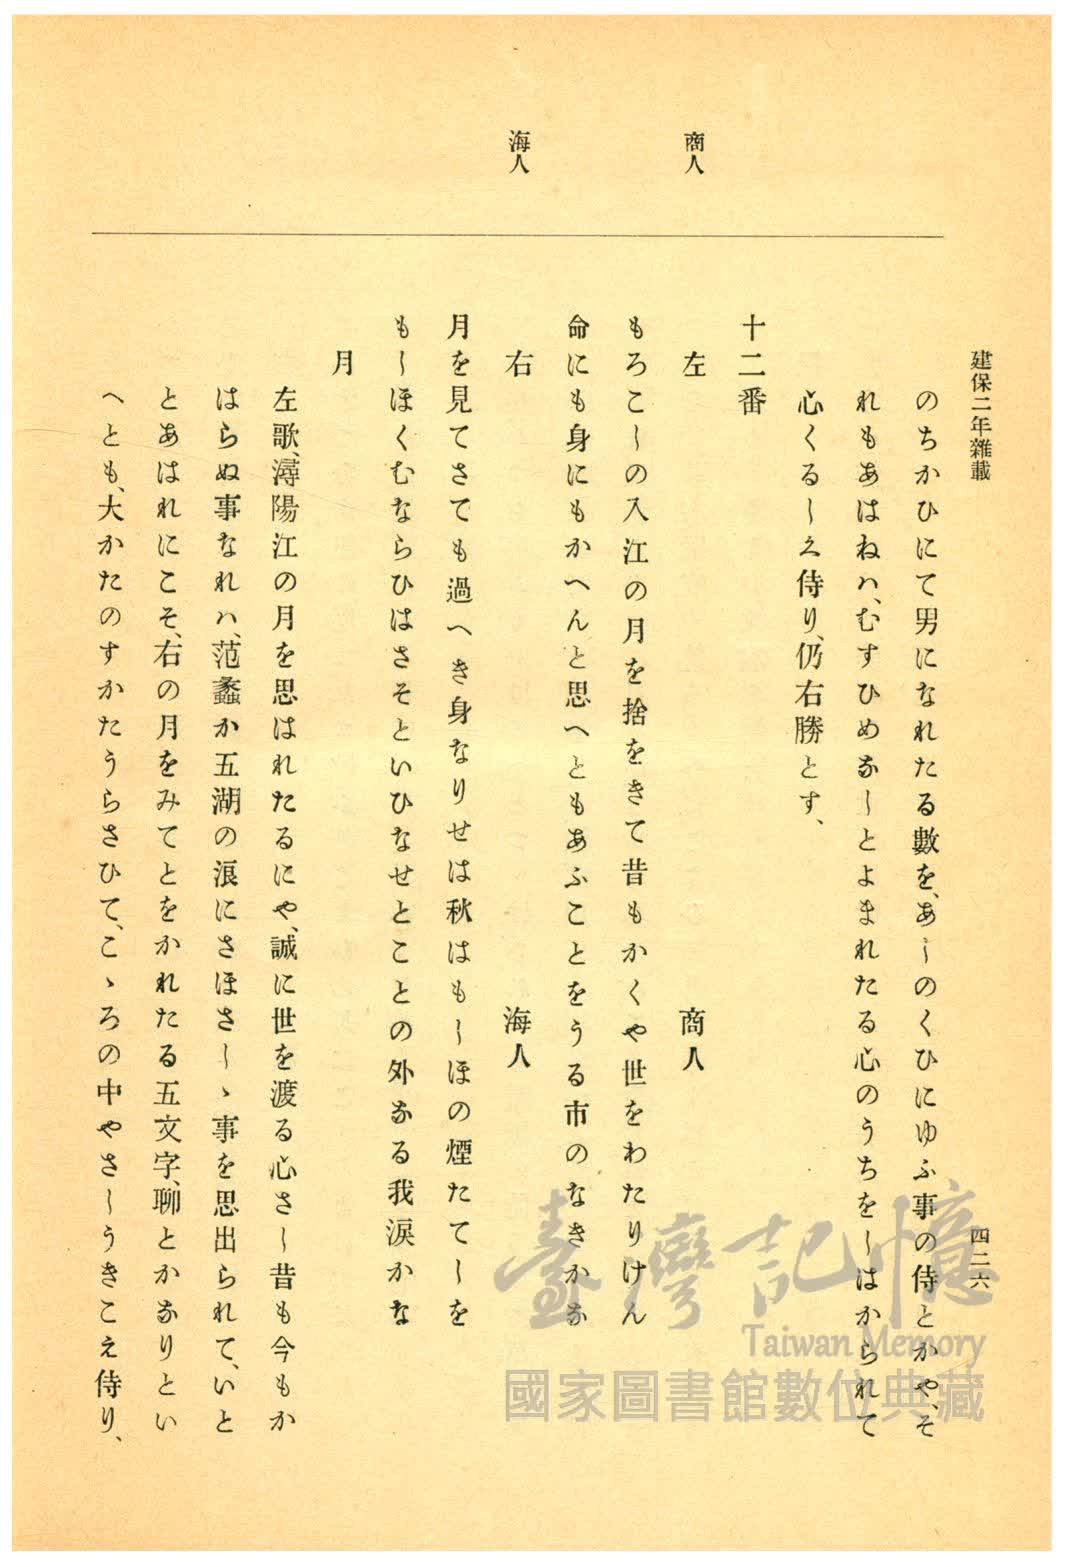 建保二年雜載
四二六
商人
海人
のちかひにて男になれたる數を、あしのくひにゆふ事の侍とかや、そ
れもあはねハ、むすひめなしとよまれたる心のうちをしはかられて
心くるしえ侍り、仍右勝とす、
十二番
左 商人
もろこしの入江の月を捨をきて昔もかくや世をわたりけん
命にも身にもかへんと思へともあふことをうる市のなきかな
右 海人
月を見てさても過へき身なりせは秋はもしほの煙たてしを
もしほくむならひはさそといひなせとことの外なる我涙かな
月
左歌、潯陽江の月を思はれたるにや、誠に世を渡る心さし昔も今もか
はらぬ事なれハ、范蠡か五湖の浪にさほさしゝ事を思出られて、いと
とあはれにこそ、右の月をみてとをかれたる五文字、聊とかなりとい
へとも、大かたのすかたうらさひて、こゝろの中やさしうきこえ侍り、
臺灣記憶
Taiwan Memory
國家圖書館數位典藏